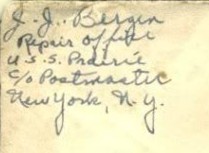 J. J. Bergen
Repair Office
U.S.S. Prairie
c/o Postmaster
New York, N.Y.